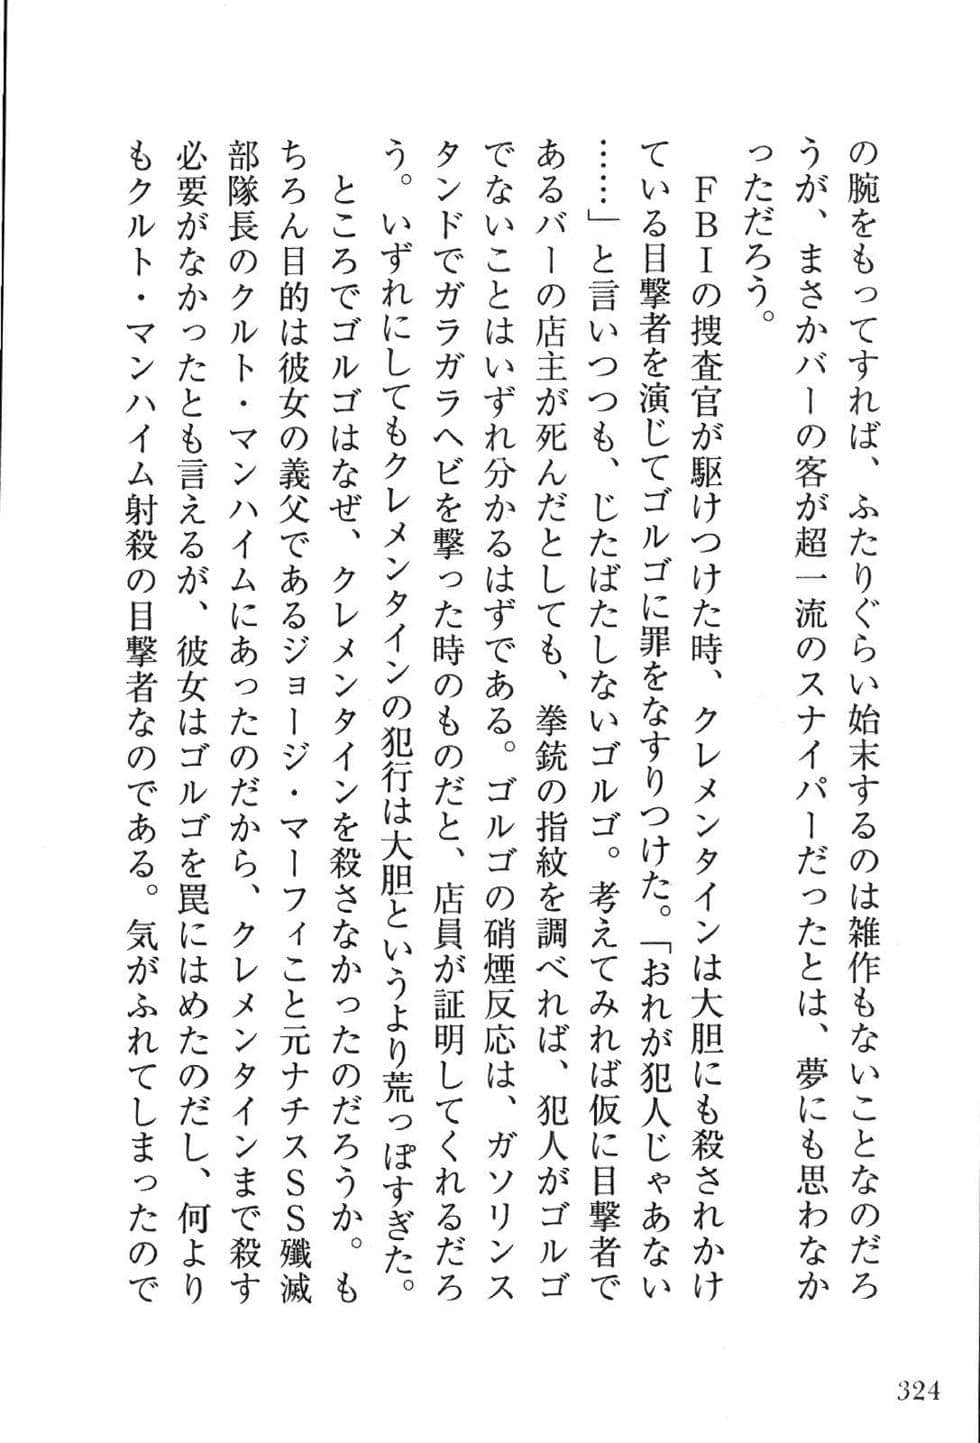 の腕をもってすれば、ふたりぐらい始末するのは雑作もないことなのだろ
うが、まさかバーの客が超一流のスナイパーだったとは、夢にも思わなか
っただろう。
　ＦＢＩの捜査官が駆けつけた時、クレメンタインは大胆にも殺されかけ
ている目撃者を演じてゴルゴに罪をなすりつけた。「おれが犯人じゃあない
……」と言いつつも、じたばたしないゴルゴ。考えてみれば仮に目撃者で
あるバーの店主が死んだとしても、拳銃の指紋を調べれば、犯人がゴルゴ
でないことはいずれ分かるはずである。ゴルゴの硝煙反応は、ガソリンス
タンドでガラガラヘビを撃った時のものだと、店員が証明してくれるだろ
う。いずれにしてもクレメンタインの犯行は大胆というより荒っぽすぎた。
　ところでゴルゴはなぜ、クレメンタインを殺さなかったのだろうか。も
ちろん目的は彼女の義父であるジョージ・マーフィこと元ナチスＳＳ殲滅
部隊長のクルト・マンハイムにあったのだから、クレメンタインまで殺す
必要がなかったとも言えるが、彼女はゴルゴを罠にはめたのだし、何より
もクルト・マンハイム射殺の目撃者なのである。気がふれてしまったので
324